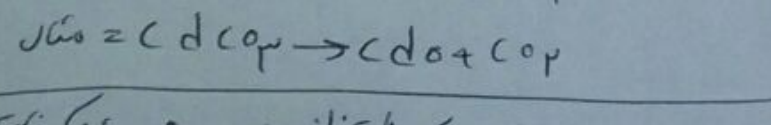 مثال = CdCO۳ → CdO + CO۲